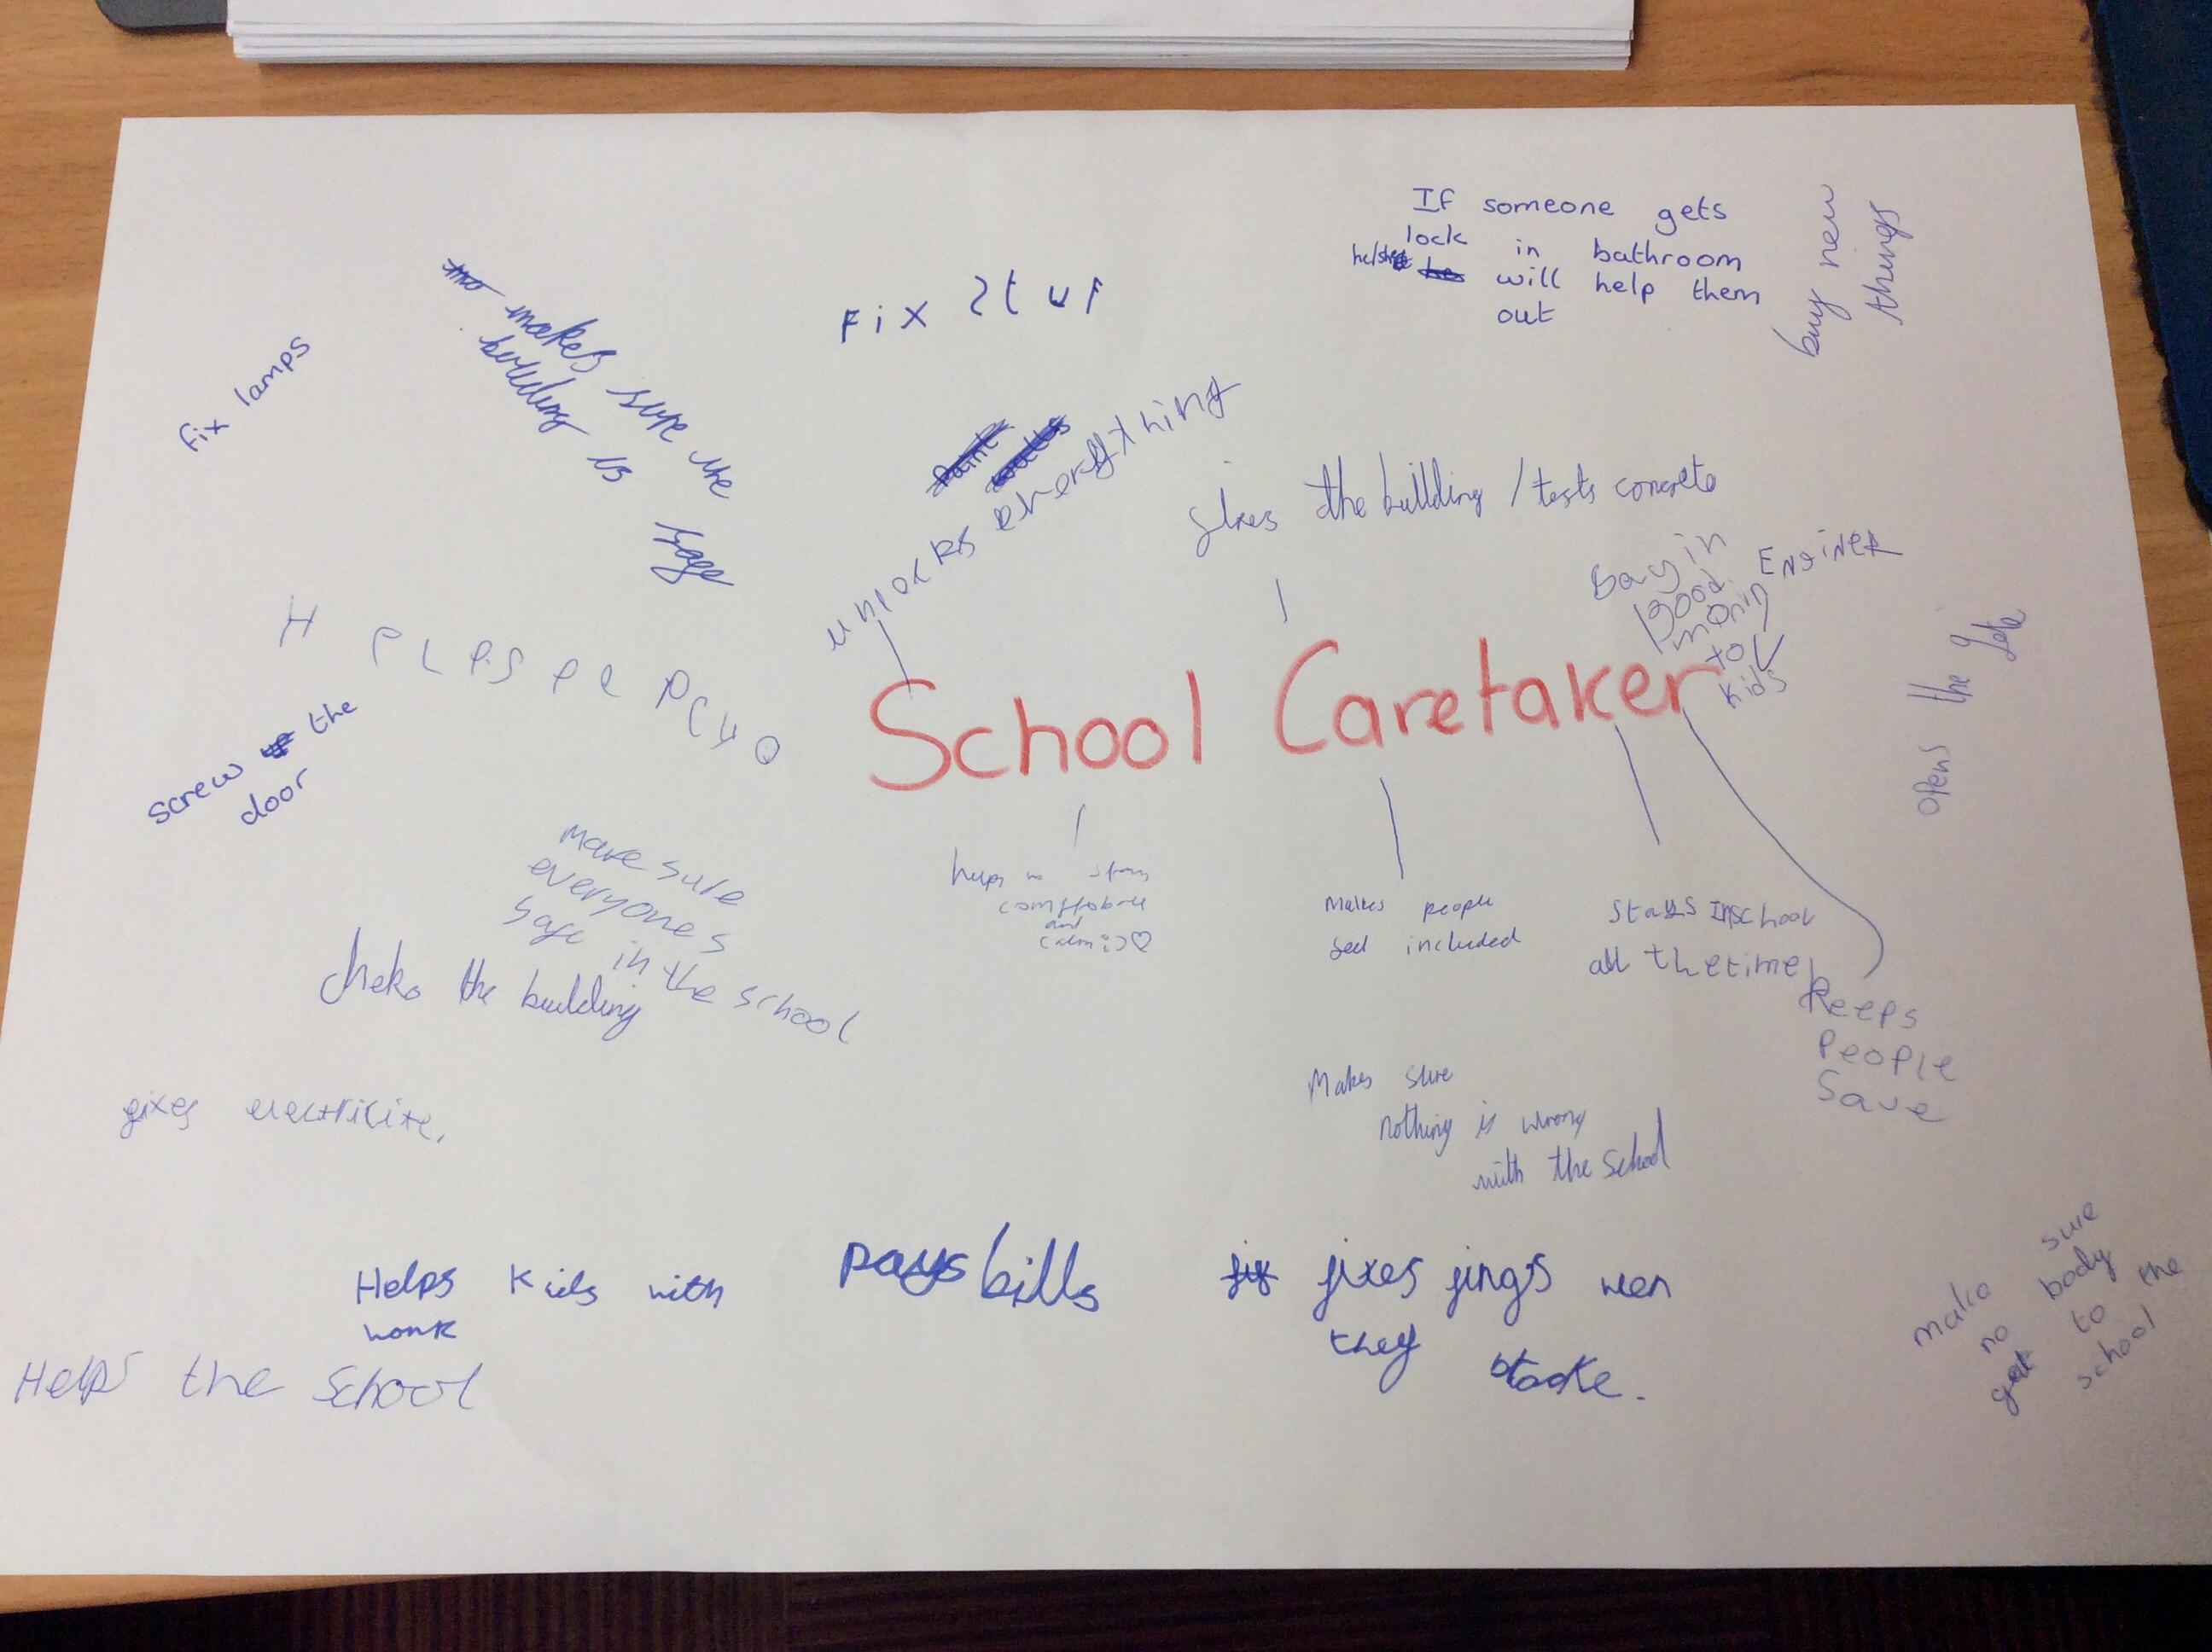 If someone gets
lock in bathroom
he/she will help them
out
buy new
things
Fix It up
makes sure the
building is
Fix lamps
unlocks everything
fixes the building / tests concrete
Sayin
good
monin
to
kids
ENGINER
opens the gate
School Caretaker
screw the
door
make sure
everyones
safe in the school
cheks the building
helps
comftoball
and
calm :) ♡
Makes people
feel included
stays Inschool
all thetime
Keeps
People
Save
fixes electricite,
Makes sure
nothing is wrong
with the School
Helps Kids with
work
pays bills
fixes fings wen
they
Helps the School
make sure
no body
get to the
school